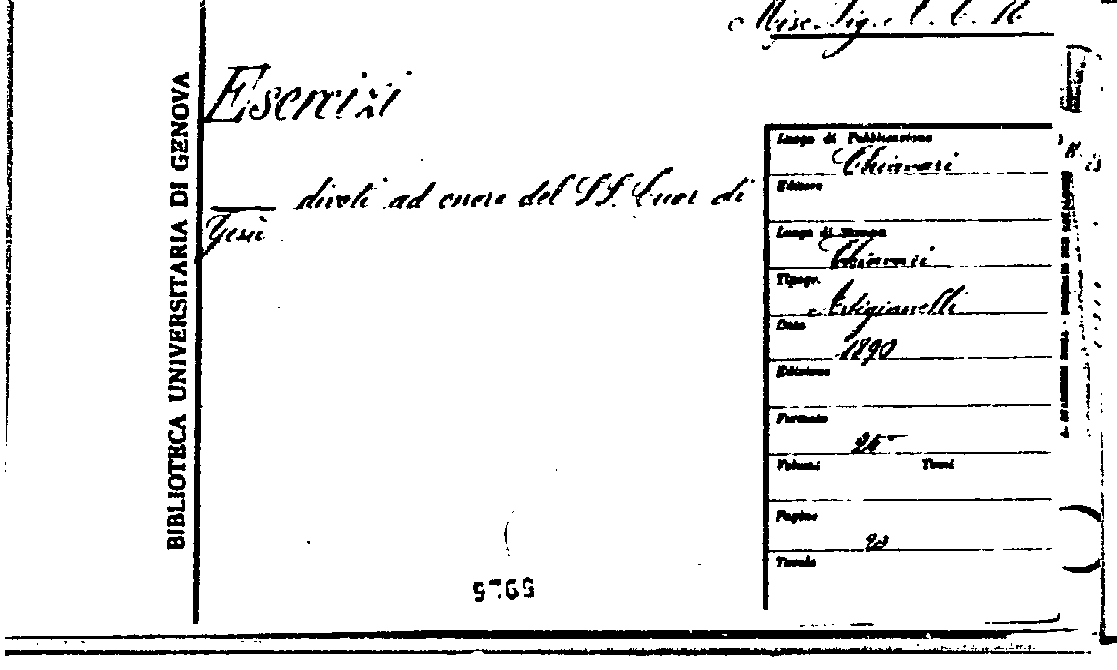 Misc. Lig. A. C. R
BIBLIOTECA UNIVERSITARIA DI GENOVA
Esercizi
divoti ad onore del SS. Cuor di
Gesù
Luogo di Pubblicazione
Chiavari
Editore
Luogo di Stampa
Chiavari
Tipogr.
Artigianelli
Data
1890
Edizione
Formato
25
Volumi Tomi
Pagine
Tavole